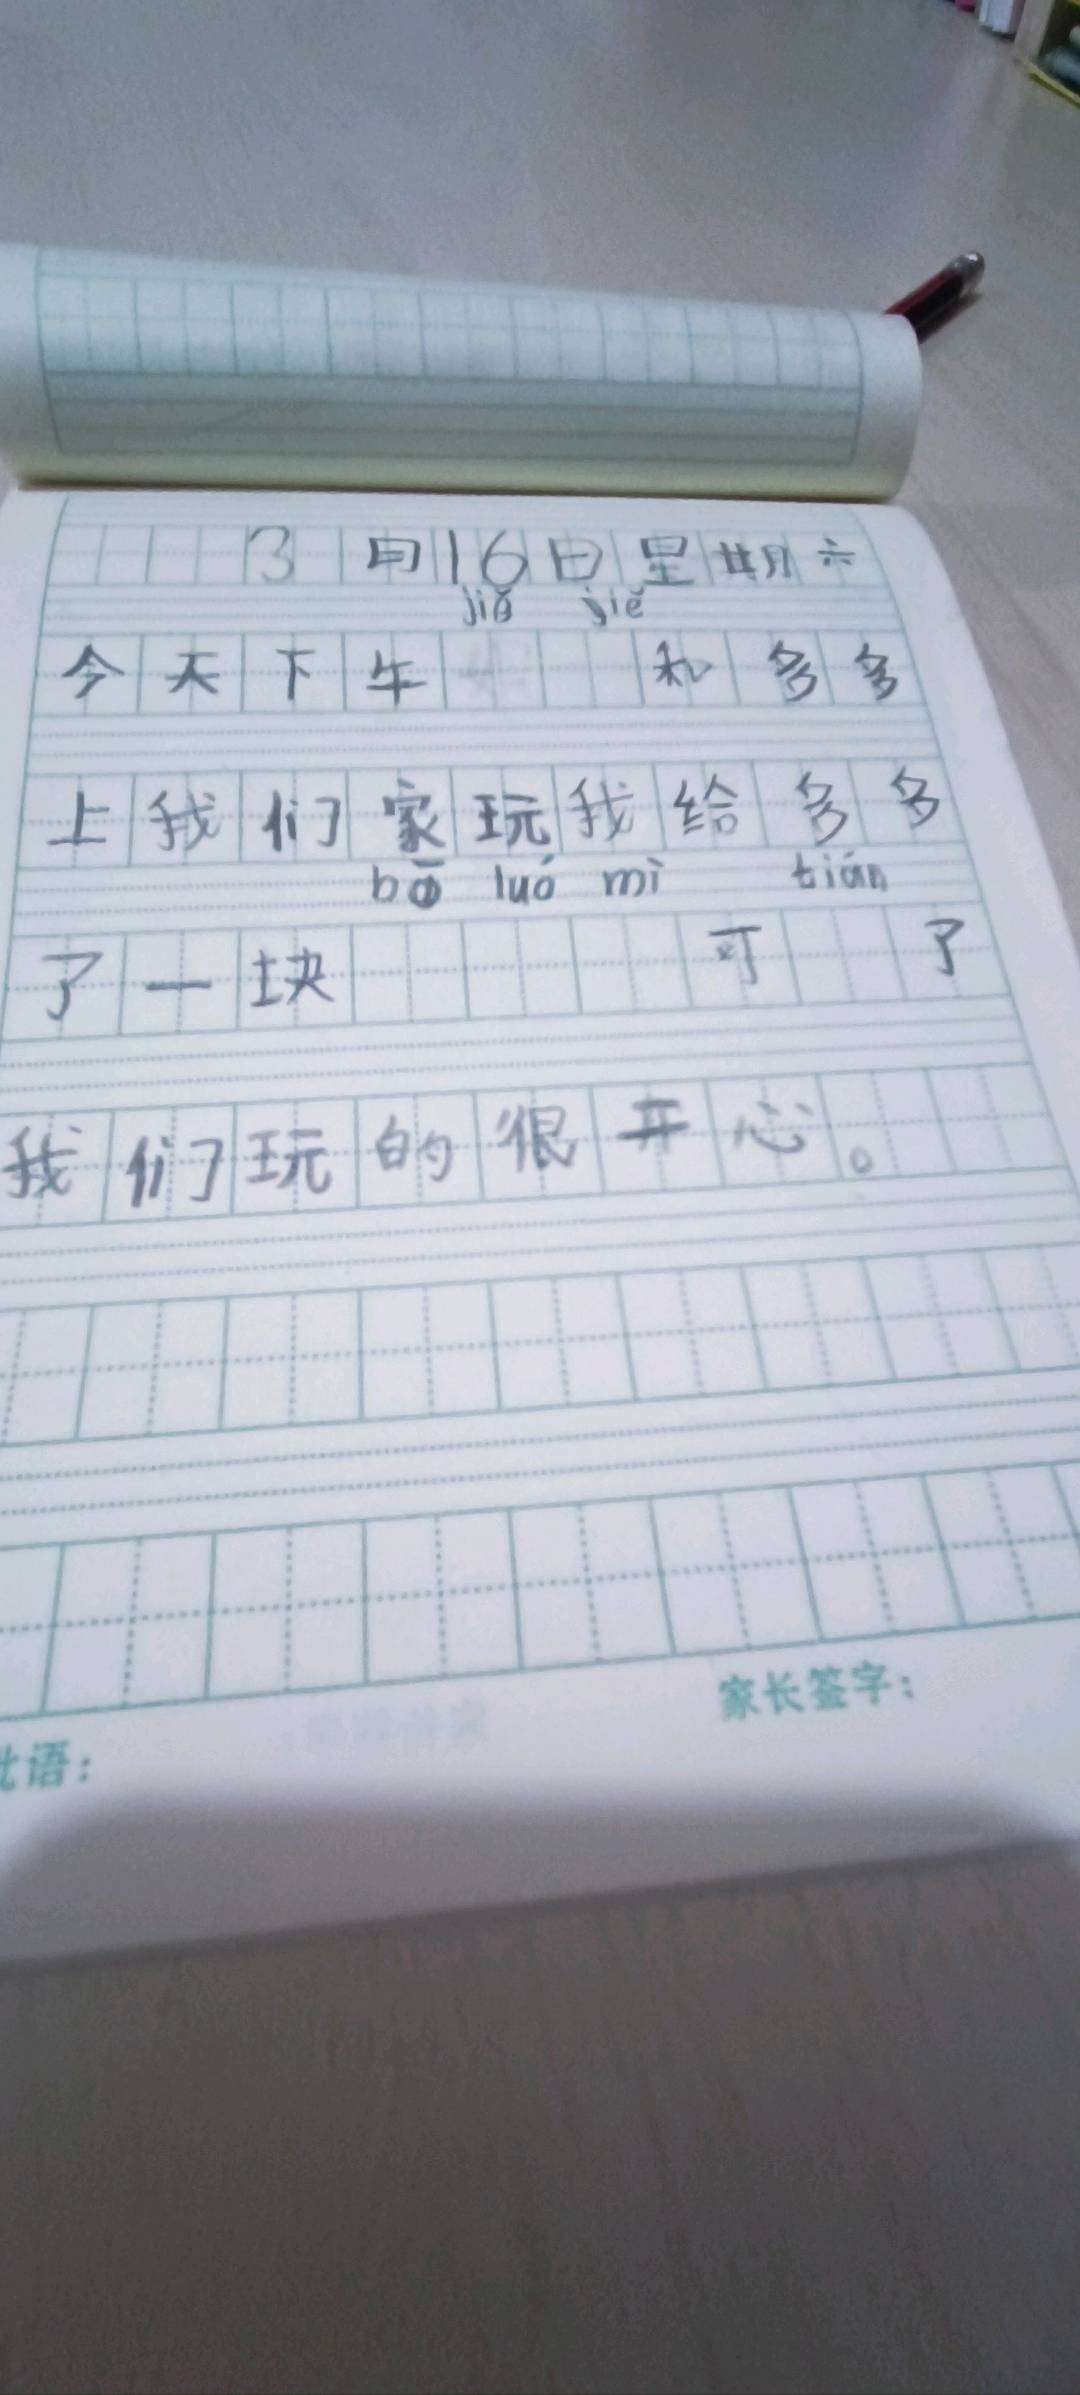 3月16日星期六
jiě jiě
今天下午 和多多
上我们家玩我给多多
bō luó mì tián
了一块 可 了
我们玩的很开心。
家长签字：
批语：